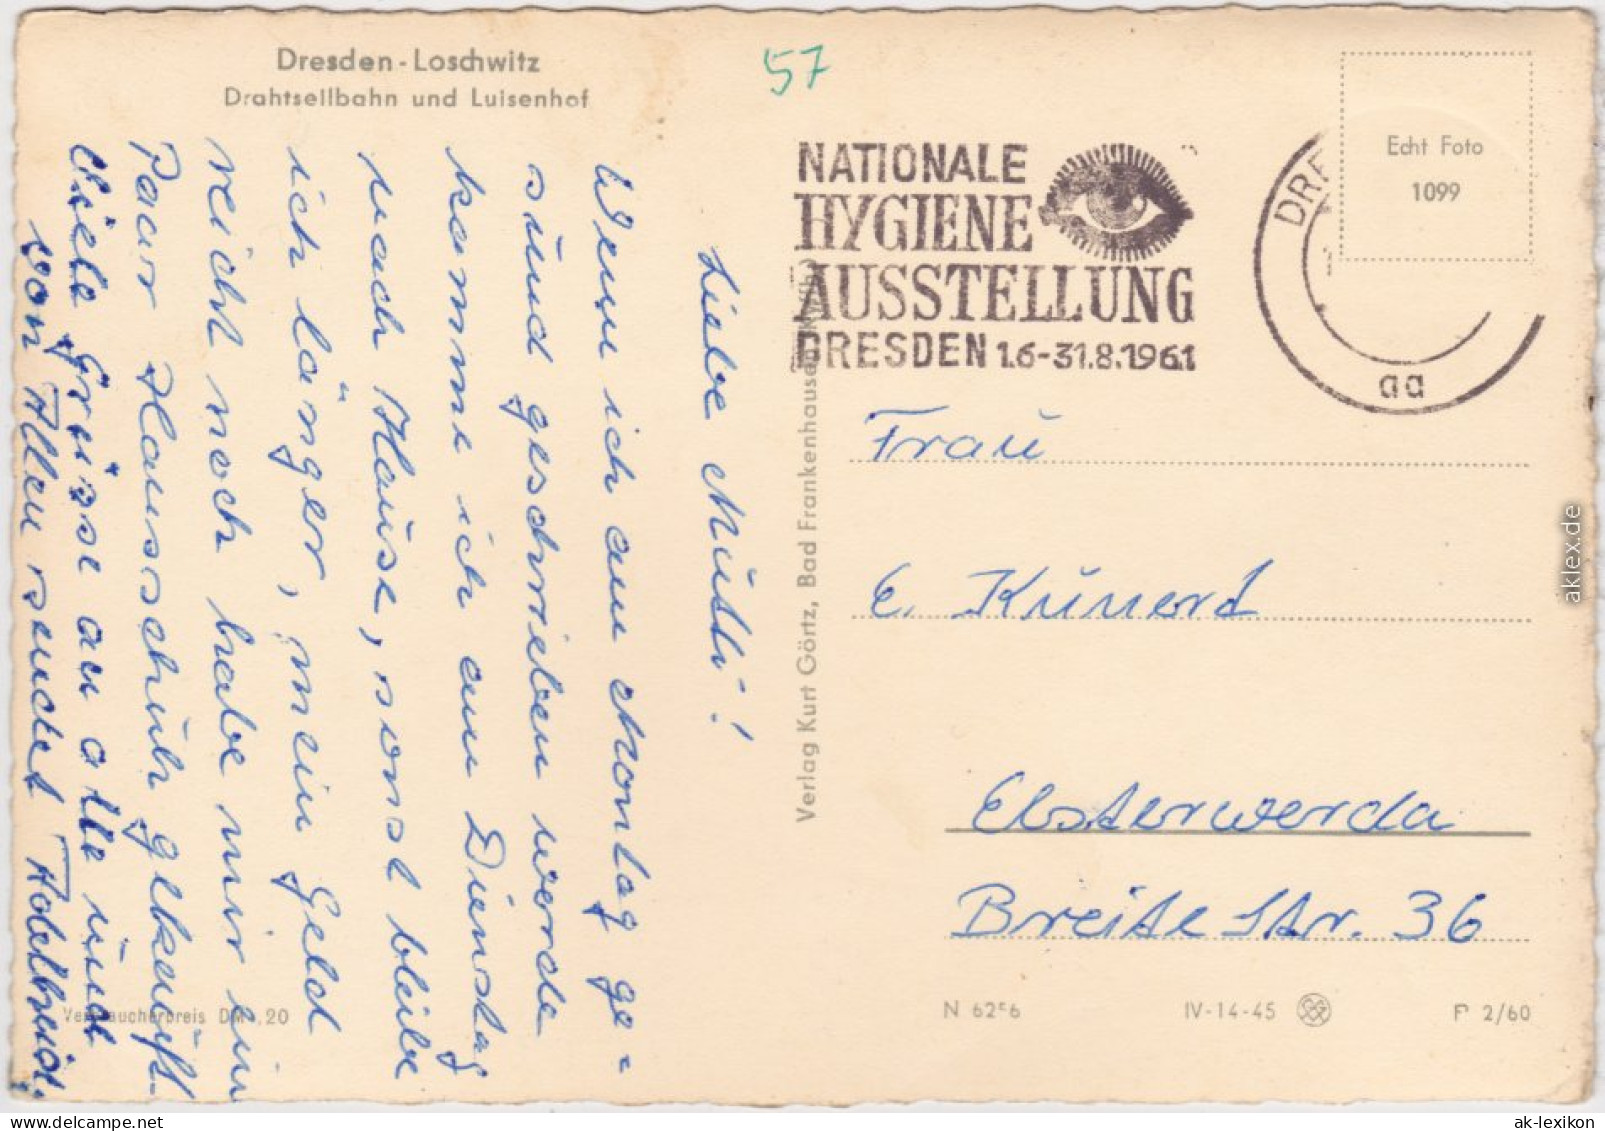 Dresden-Loschwitz
Drahtseilbahn und Luisenhof
57
NATIONALE
HYGIENE
AUSSTELLUNG
DRESDEN 1.6-31.8.1961
DRE
aa
Echt Foto
1099
Liebe Mutti!
Wenn ich am Montag ge-
sund geschrieben werde
komme ich am Dienstag
nach Hause, sonst bleibe
ich länger, mein Geld
reicht noch habe mir ein
Paar Hausschuh gekauft.
Viele Grüsse an alle und
von Allen sendet
Verlag Kurt Görtz, Bad Frankenhausen
Frau
E. Kunerd
Elsterwerda
Breite Str. 36
Verbraucherpreis DM -,20
N 62 6
IV-14-45
P 2/60
aklex.de
ak-lexikon